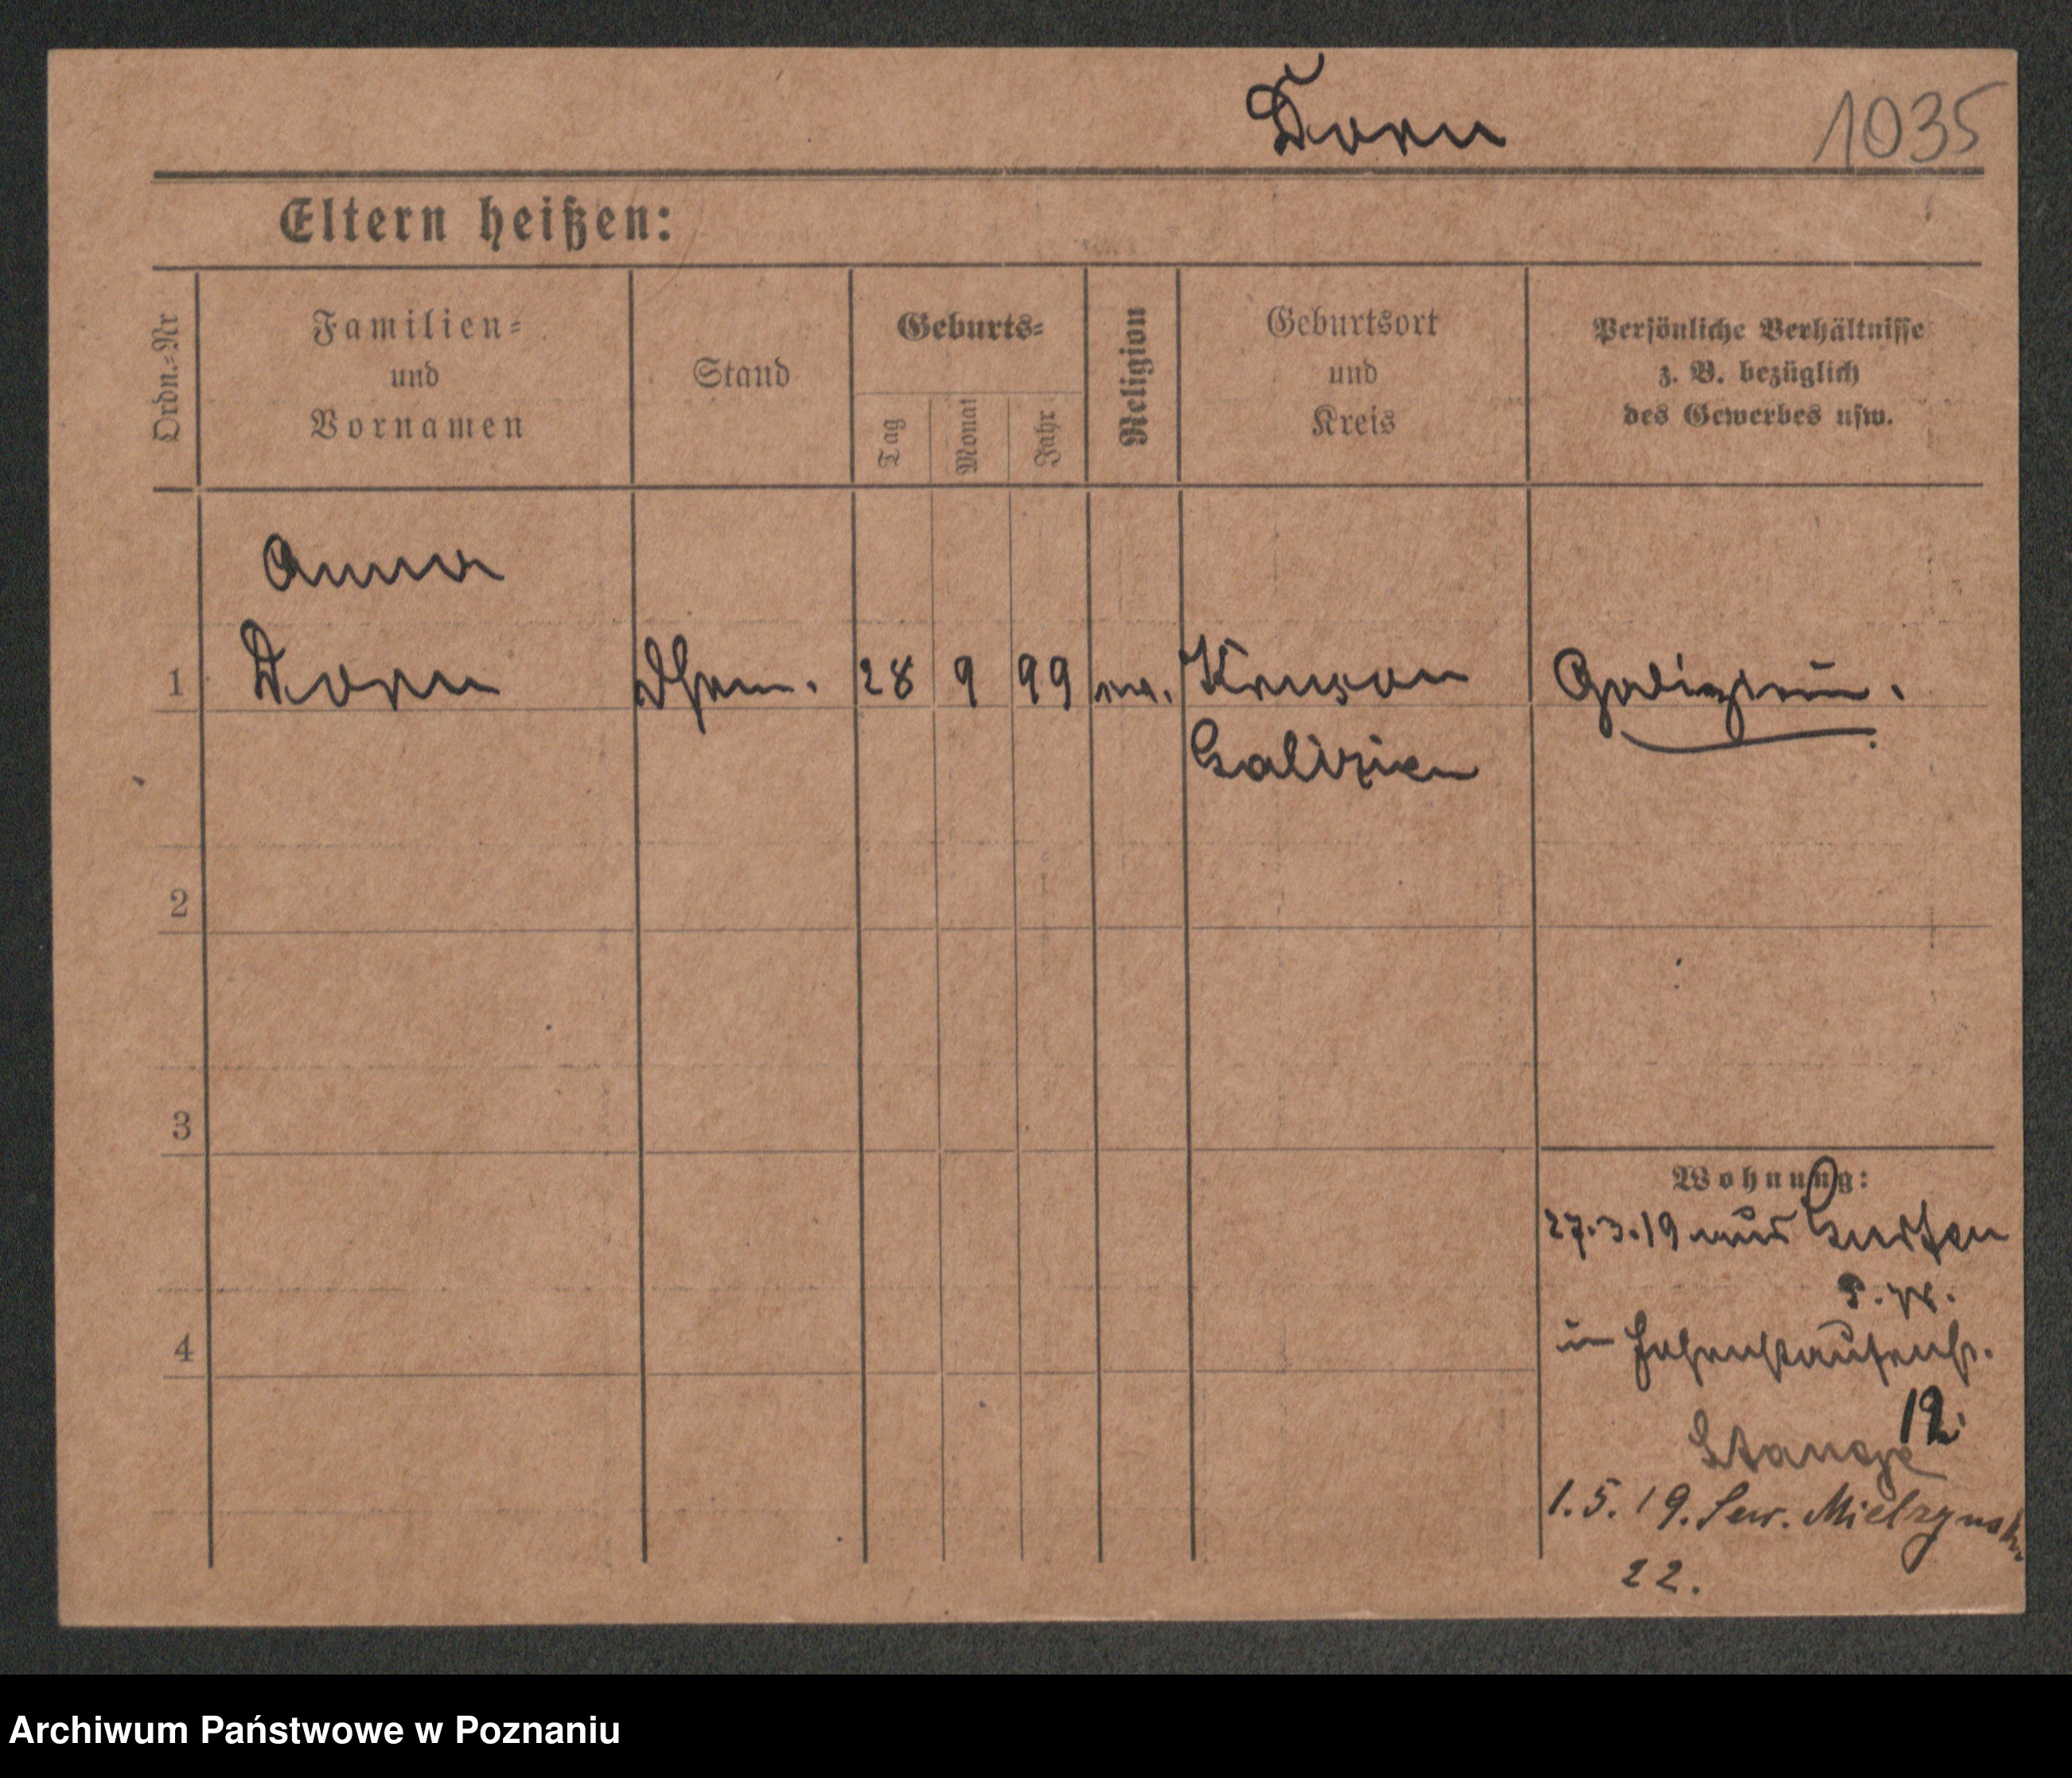 Dorn
1035
Eltern heißen:
Ordn.=Nr
Familien=
und
Vornamen
Stand
Geburts=
Tag
Monat
Jahr
Religion
Geburtsort
und
Kreis
Persönliche Verhältnisse
z. B. bezüglich
des Gewerbes usw.
Anna
1 Dorn 28 9 99 Galizierin.
Galizien
2
3
4
Wohnung:
27.3.19 aus Gursen
in Hohenstaufenstr.
12.
Stange
1.5.19. Sew. Mielzynsk.
22.
Archiwum Państwowe w Poznaniu